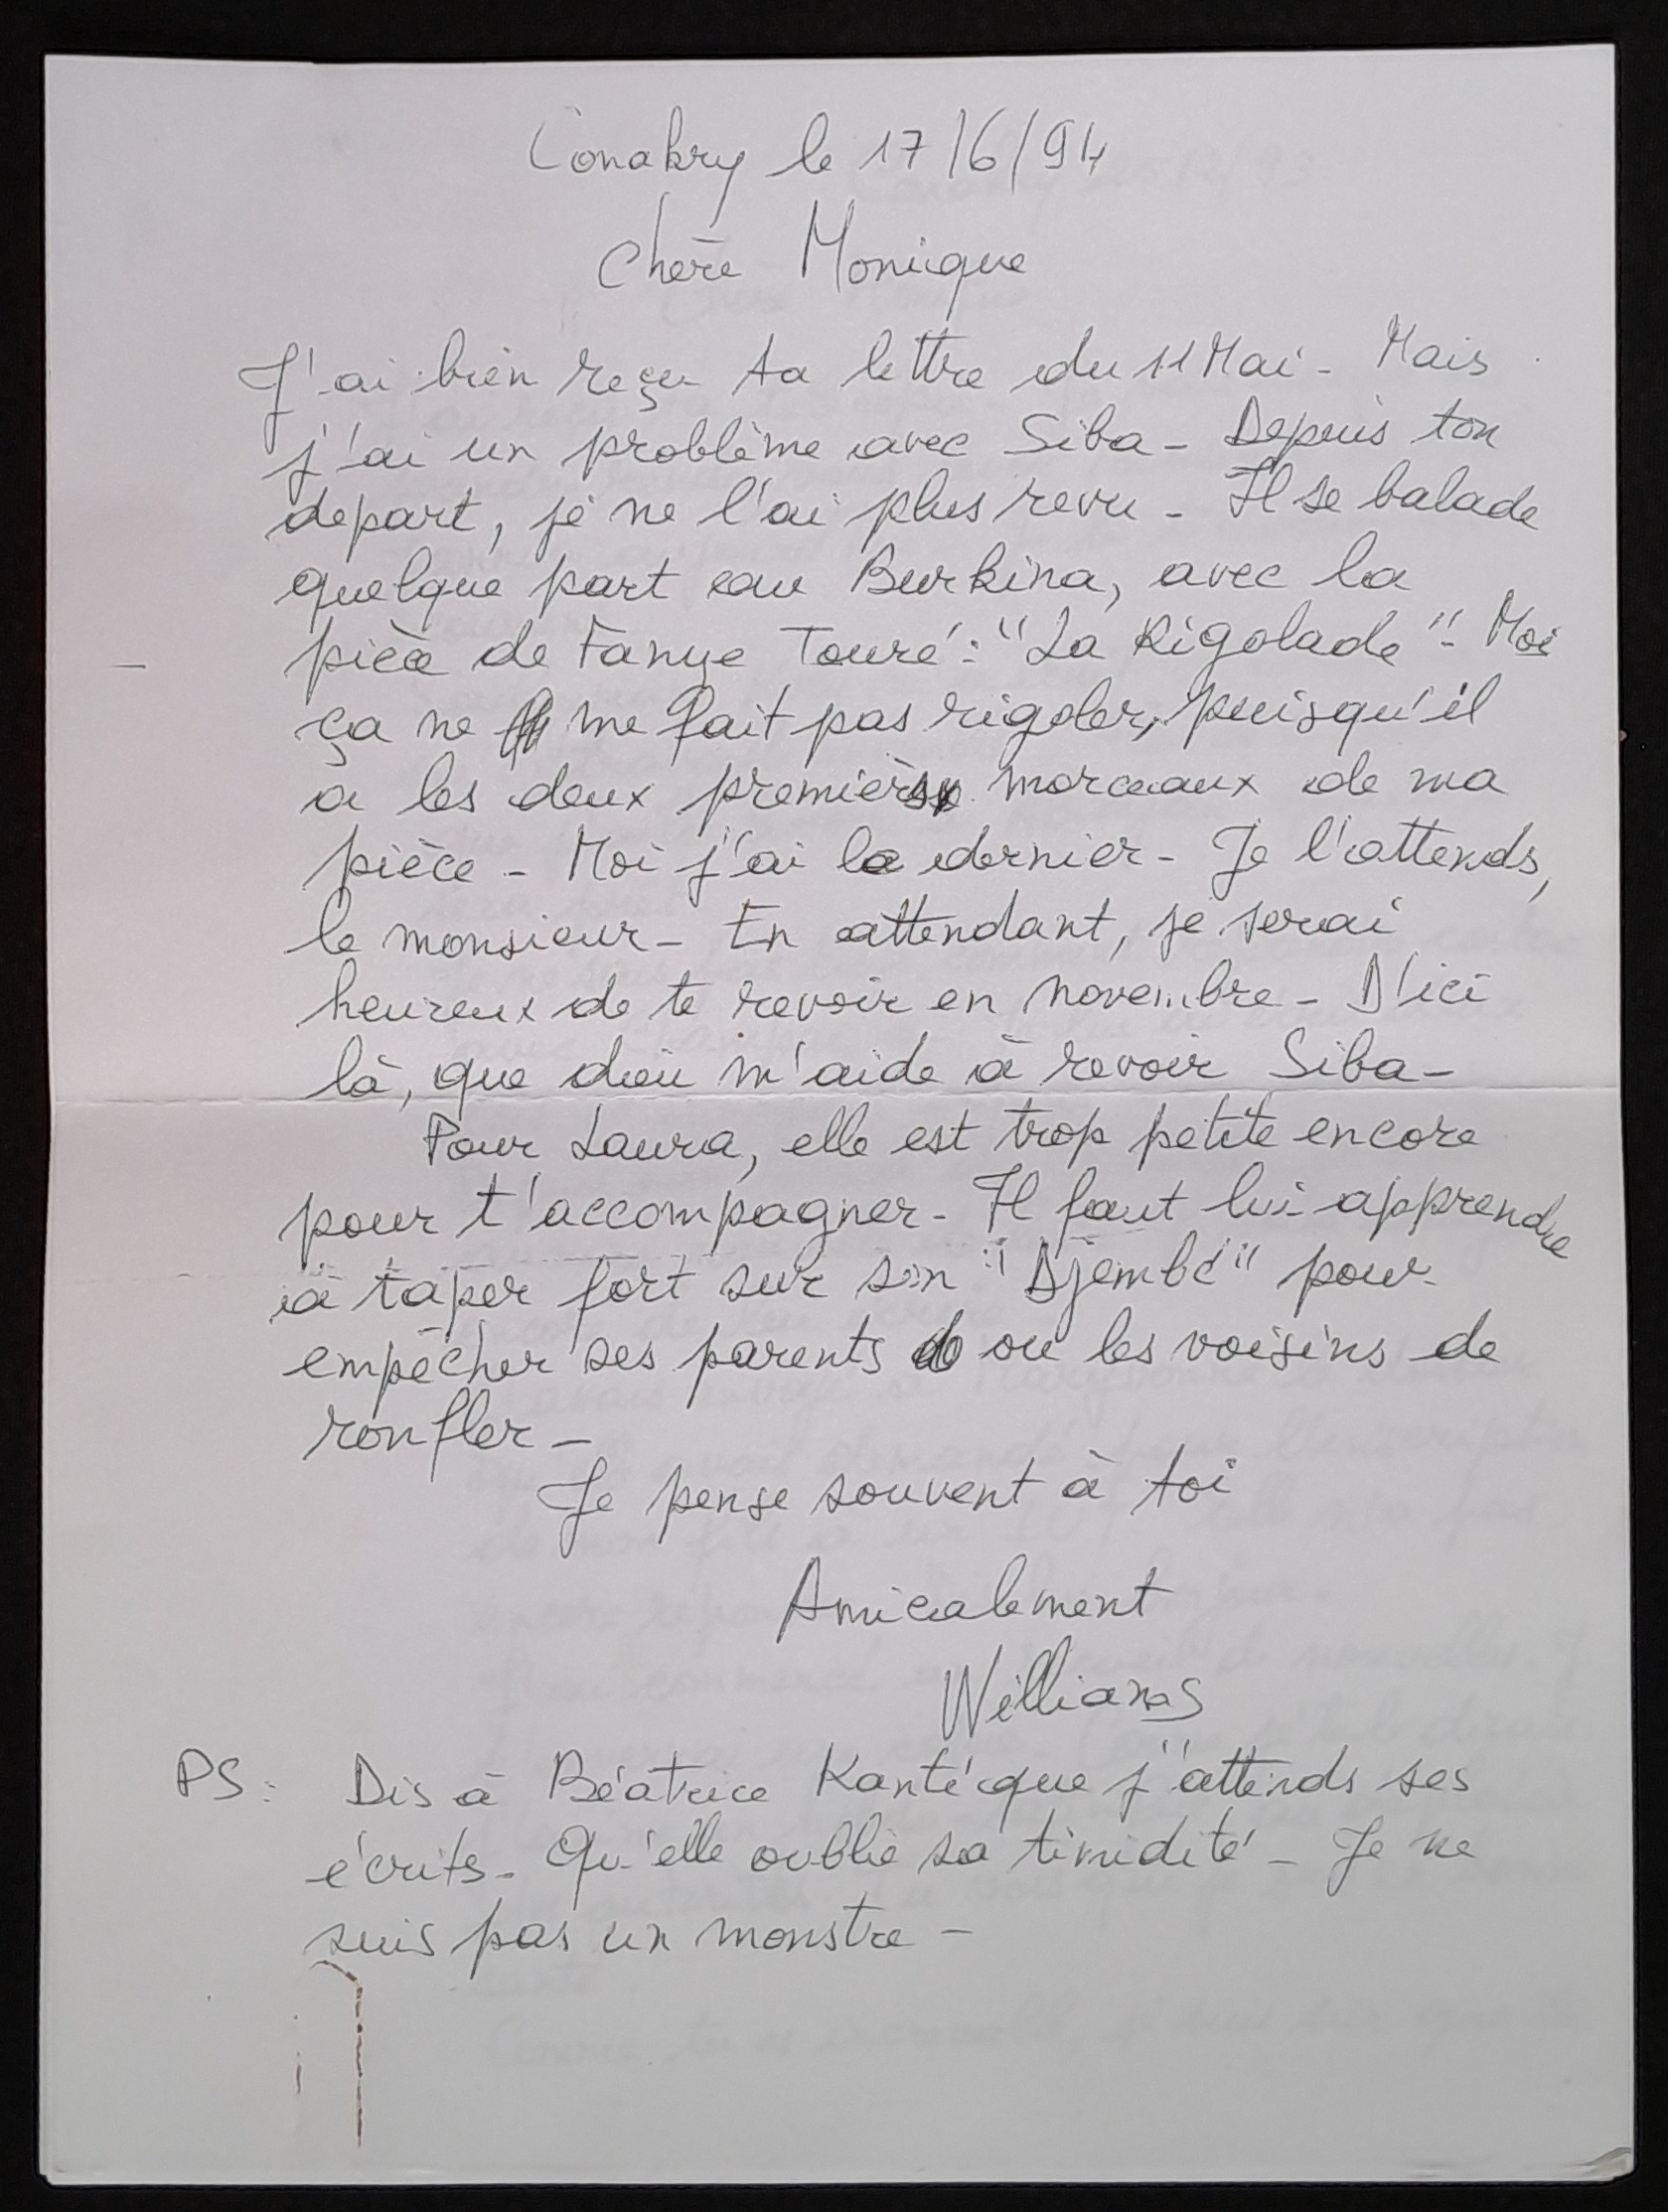 Conakry le 17/6/94
Chère Monique
J'ai bien reçu ta lettre du 11 Mai - Mais
j'ai un problème avec Siba - Depuis ton
depart, je ne l'ai plus revu - Il se balade
quelque part au Burkina, avec la
pièce de Fanye Touré : "La Rigolade" - Moi
ça ne me fait pas rigoler, puisqu'il
a les deux premiers morceaux de ma
pièce - Moi j'ai le dernier - Je l'attends,
le monsieur - En attendant, je serai
heureux de te revoir en novembre - D'ici
là, que dieu m'aide à revoir Siba -
Pour Laura, elle est trop petite encore
pour t'accompagner - Il faut lui apprendre
à taper fort sur son "Djembé" pour
empêcher ses parents ou les voisins de
ronfler -
Je pense souvent à toi
Amicalement
Williams
PS : Dis à Béatrice Kanté que j'attends ses
écrits - Qu'elle oublie sa timidité - Je ne
suis pas un monstre -